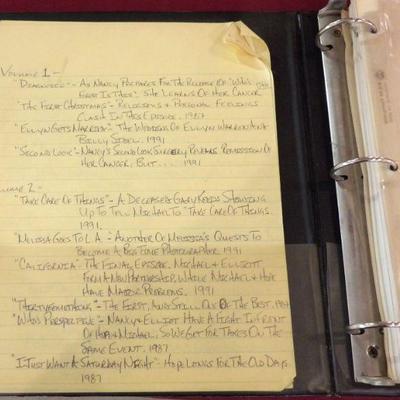 Volume 1 -
"Diagnosis" - As Nancy Prepares For The Release Of "Who's
Forest Is This?" She Learns Of Her Cancer. 1990
"The First Christmas" - Religious & Personal Feelings
Clash In This Episode. 1987
"Ellyn Gets Married" - The Wedding Of Ellyn Warren And
Billy Sidel. 1991
"Second Look" - Nancy's Second Look Surgery Reveals Remission Of
Her Cancer, But... 1991
Volume 2 -
"Take Care Of Things" - A Deceased Gary Keeps Showing
Up To Tell Michael To "Take Care Of Things."
1991.
"Melissa Goes To L.A." - Another Of Melissa's Quests To
Become A Big Time Photographer 1991
"California" - The Final Episode. Michael & Elliott
Form A New Partnership, While Michael & Hope
Have Major Problems. 1991
"Thirtysomething" - The First, And Still One Of The Best. 1987
"Weird Perspective" - Nancy & Elliot Have A Fight In Front
Of Hope & Michael, So We Get Four Takes On The
Same Event. 1987
"I'm Just Want A Saturday Night" - Hope Longs For The Old Days.
1987